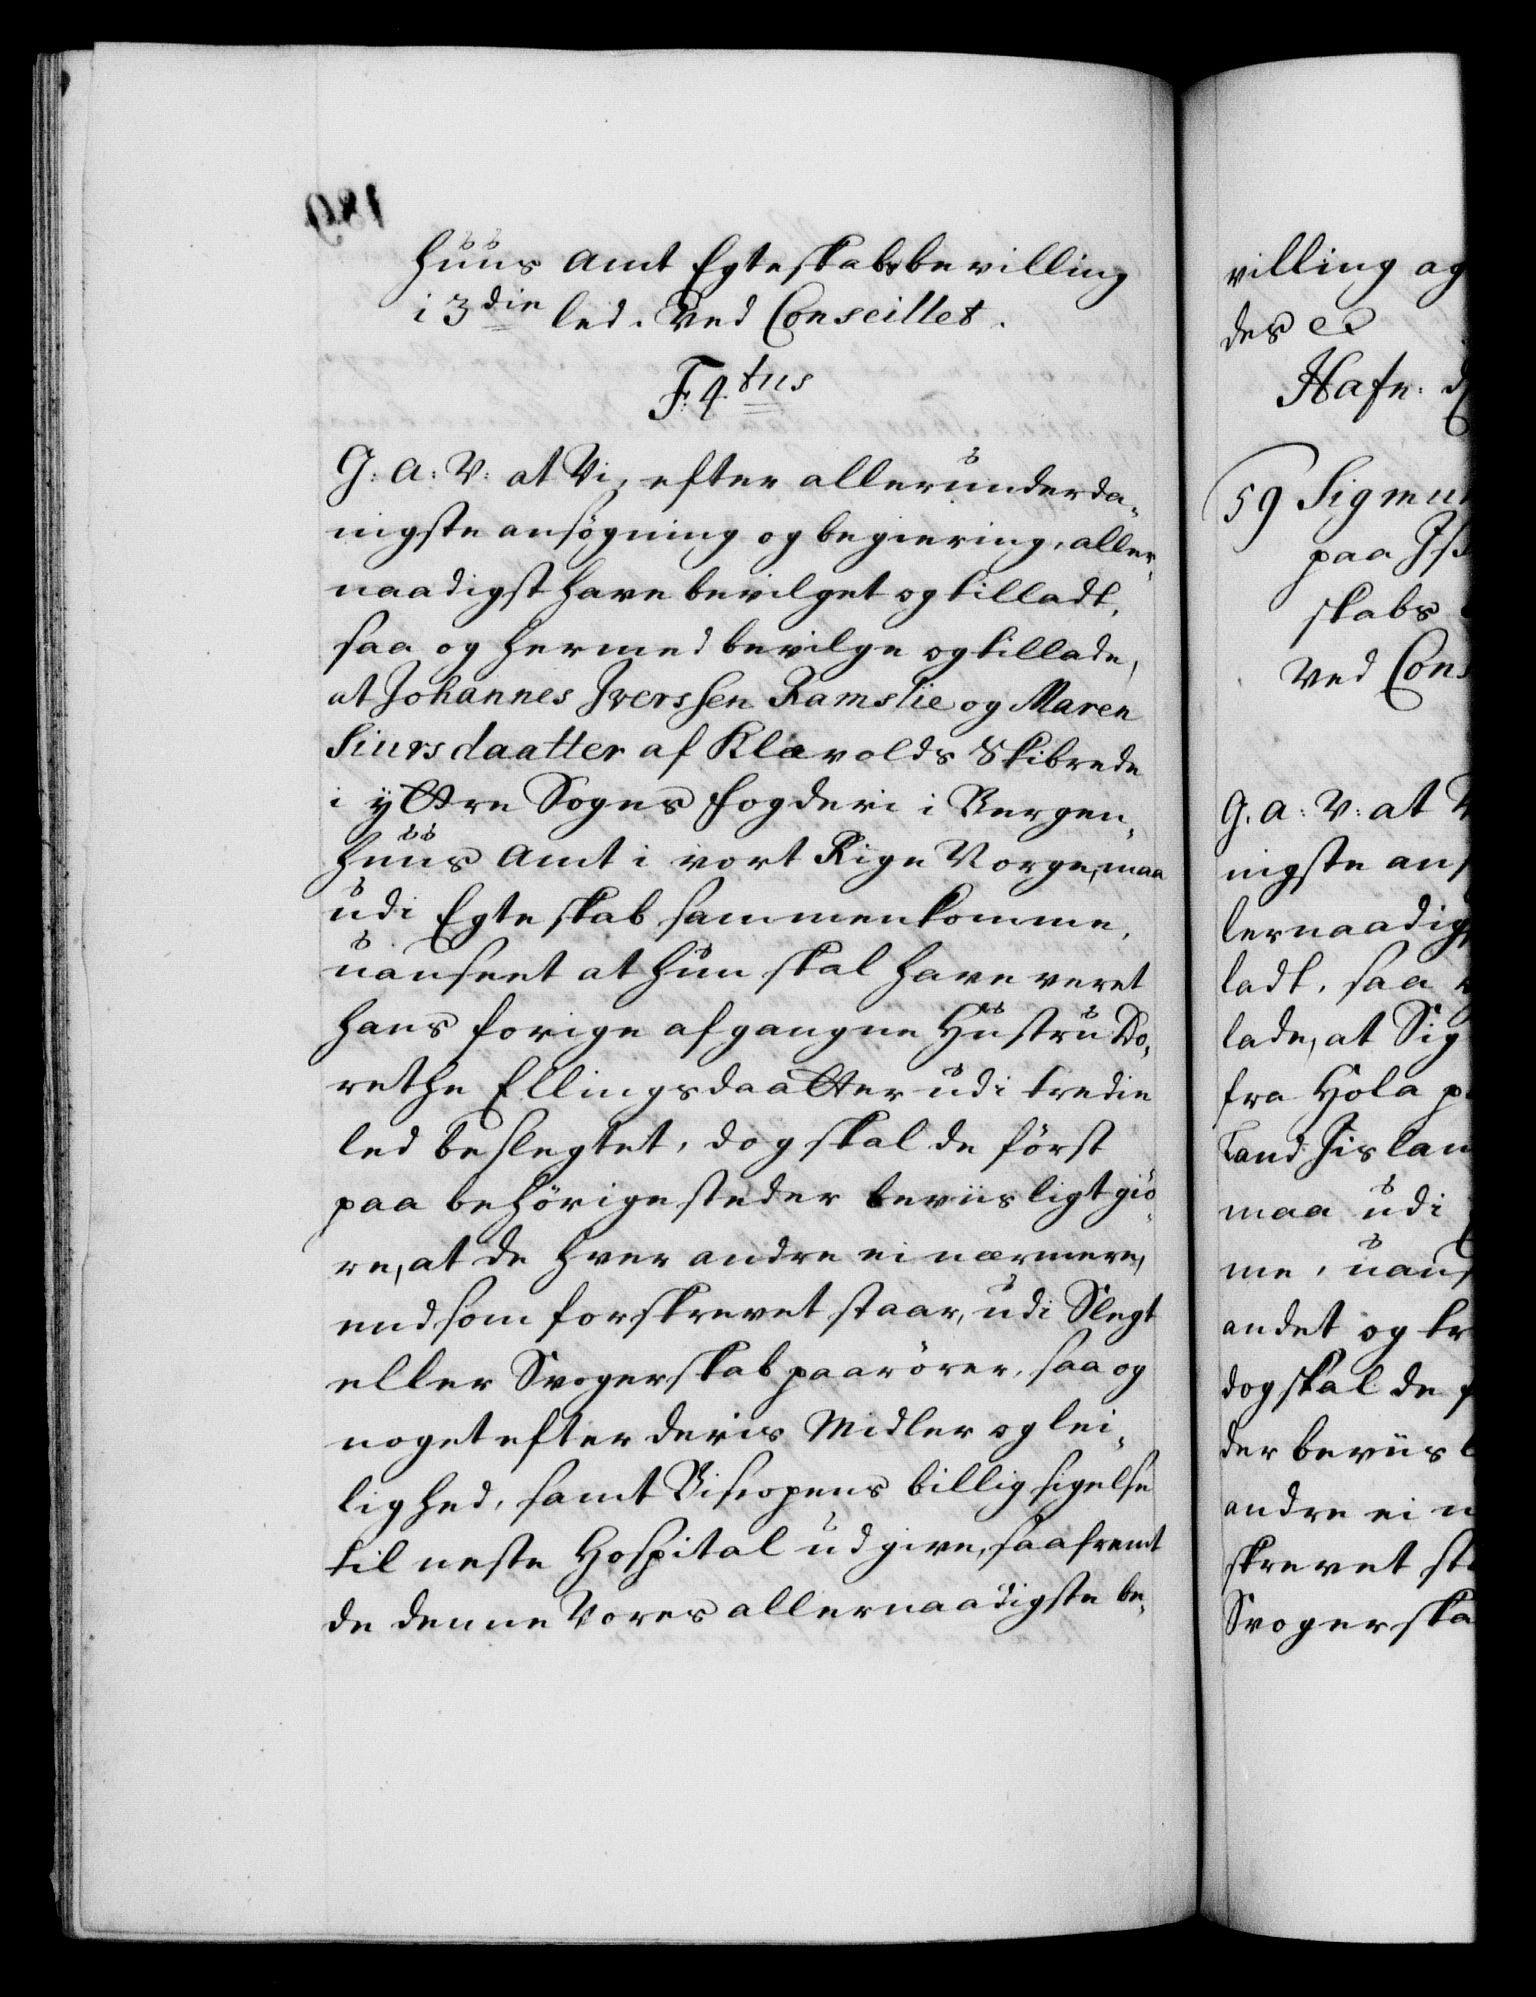 huus Amt Egteskabsbevilling
i 3die led. Ved Conseillet.
F. 4.tus
G: A: V: at Vi, efter allerunderda-
nigste ansøgning og begiering, aller-
naadigst have bevilget og tilladt,
saa og hermed bevilge og tillade,
at Johannes Iverssen Ramslie og Maren
Siursdaatter af Klævolds Skibrede
i yttre Sogns fogderi i Bergen-
huus Amt i vort Rige Norge, maa
udi Egteskab sammenkomme,
uanseet at hun skal have veret
hans forige afgangne Hustru Do-
rethe Ellingsdaatter udi tredie
led beslegtet, dog skal de först
paa behörige steder beviisligt giö-
re, at de hver andre ei nærmere,
end som forskrevet staar, udi Slegt
eller Svogerskab paarörer, saa og
noget efter deris Midler og lei-
lighed, samt Biscopens billig sigelse
til neste Hospital udgive, saafremt
de denne Vores allernaadigste be-
villing og
des ex
Hafn: d
59 Sigmun
paa Iss
skabs
Ved Cons
G. A: V: at V
nigste ans
lernaadigs
ladt, saa
lade, at Sig
fra Hola p
Land Iislan
maa udi
me, uans
andet og tr
dog skal de f
der beviisl
andre ei n
skrevet sta
Svogerska